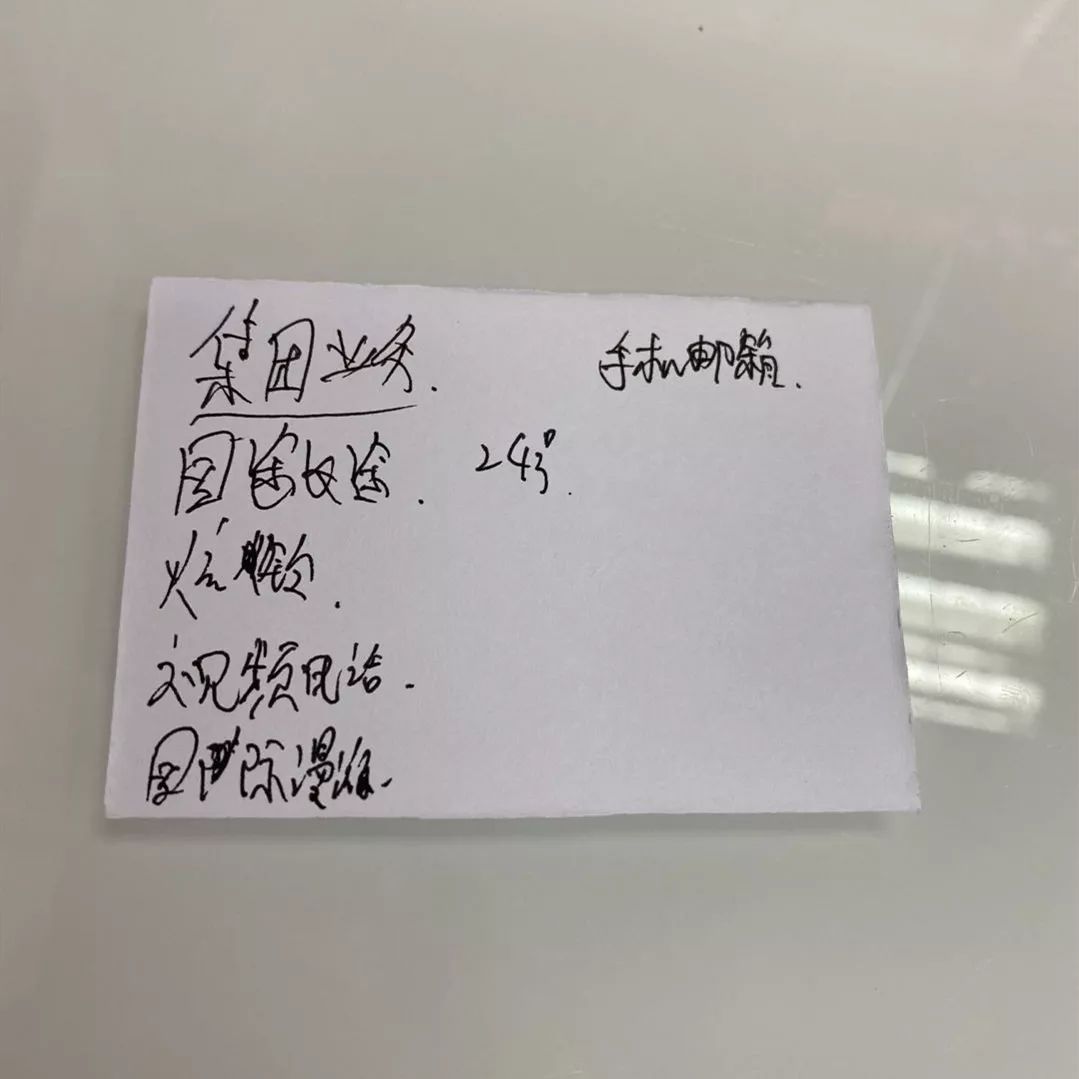 集团业务. 手机邮箱.
国际长途. 24号.
炫铃.
视频电话.
国际漫游.